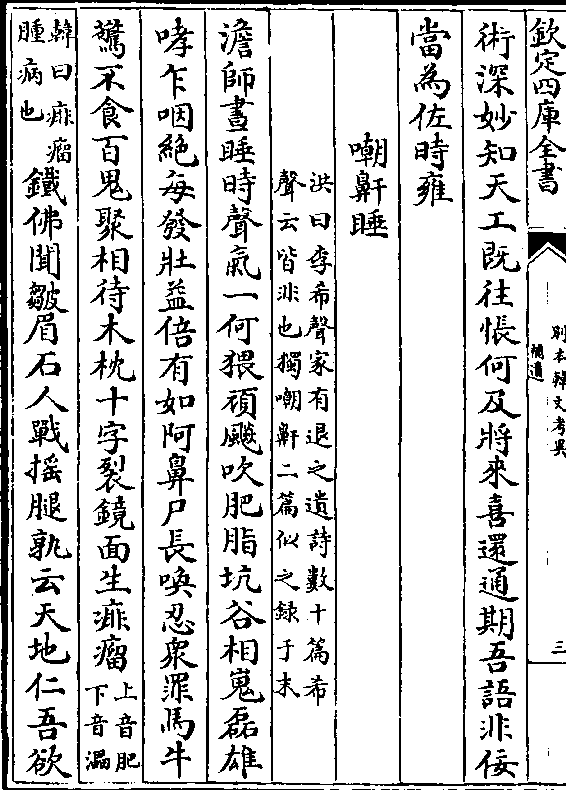 欽定四庫全書
別本韓文考異
補遺
三
術深妙知天工既往悵何及將來喜還通期吾語非佞
當為佐時雍
嘲鼾睡
洪曰李希聲家有退之遺詩數十篇希
聲云皆非也獨嘲鼾二篇似之録于末
澹師晝睡時聲氣一何猥頑飈吹肥脂坑谷相嵬磊雄
哮乍咽絶每發壯益倍有如阿鼻尸長喚忍衆罪馬牛
驚不食百鬼聚相待木枕十字裂鏡面生痱瘤上音肥下音漏
韓曰痱瘤腫病也鐵佛聞皺眉石人戰摇腿孰云天地仁吾欲